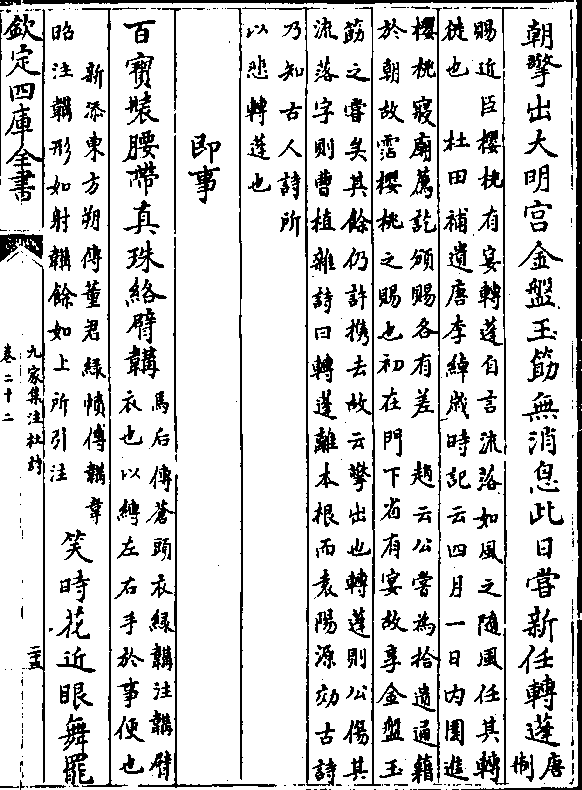 朝擎出大明宫金盤玉筯無消息此日嘗新任轉蓬唐制
賜近臣櫻桃有宴轉蓬自言流落如風之隨風任其轉
徙也　杜田補遺唐李綽歳時記云四月一日内園進
櫻桃寢廟薦訖頒賜各有差　趙云公嘗為拾遺通籍
於朝故霑櫻桃之賜也初在門下省有宴故享金盤玉
筯之嘗矣其餘仍許携去故云擎出也轉蓬則公傷其
流落字則曹植雜詩曰轉蓬離本根而袁陽源効古詩
乃知古人詩所
以悲轉蓬也
即事
百寳装腰帶真珠絡臂韝馬后傳蒼頭衣緑韝注韝臂
衣也以縳左右手於事便也
新添東方朔傳董君緑幘傳韝韋
昭注韝形如射韝餘如上所引注笑時花近眼舞罷
欽定四庫全書
九家集注杜詩
卷二十二
二十五